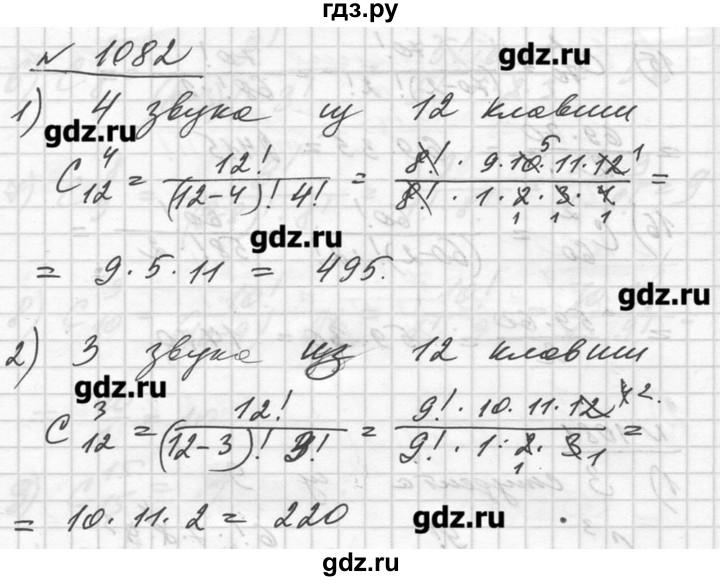 гдз.ру
№ 1082
gdz.ru
1) 4 звука из 12 клавиш
gdz.ru
C₁₂⁴ = 12! / (12-4)! 4! = 8! · 9 · 10 5 · 11 · 12 1 / 8! · 1 · 2 1 · 3 1 · 4 1 =
gdz.ru
= 9 · 5 · 11 = 495.
gdz.ru
2) 3 звука из 12 клавиш
gdz.ru
C₁₂³ = 12! / (12-3)! 3! = 9! · 10 · 11 · 12 2. / 9! · 1 · 2 1 · 3 1 =
= 10 · 11 · 2 = 220
gdz.ru
gdz.ru